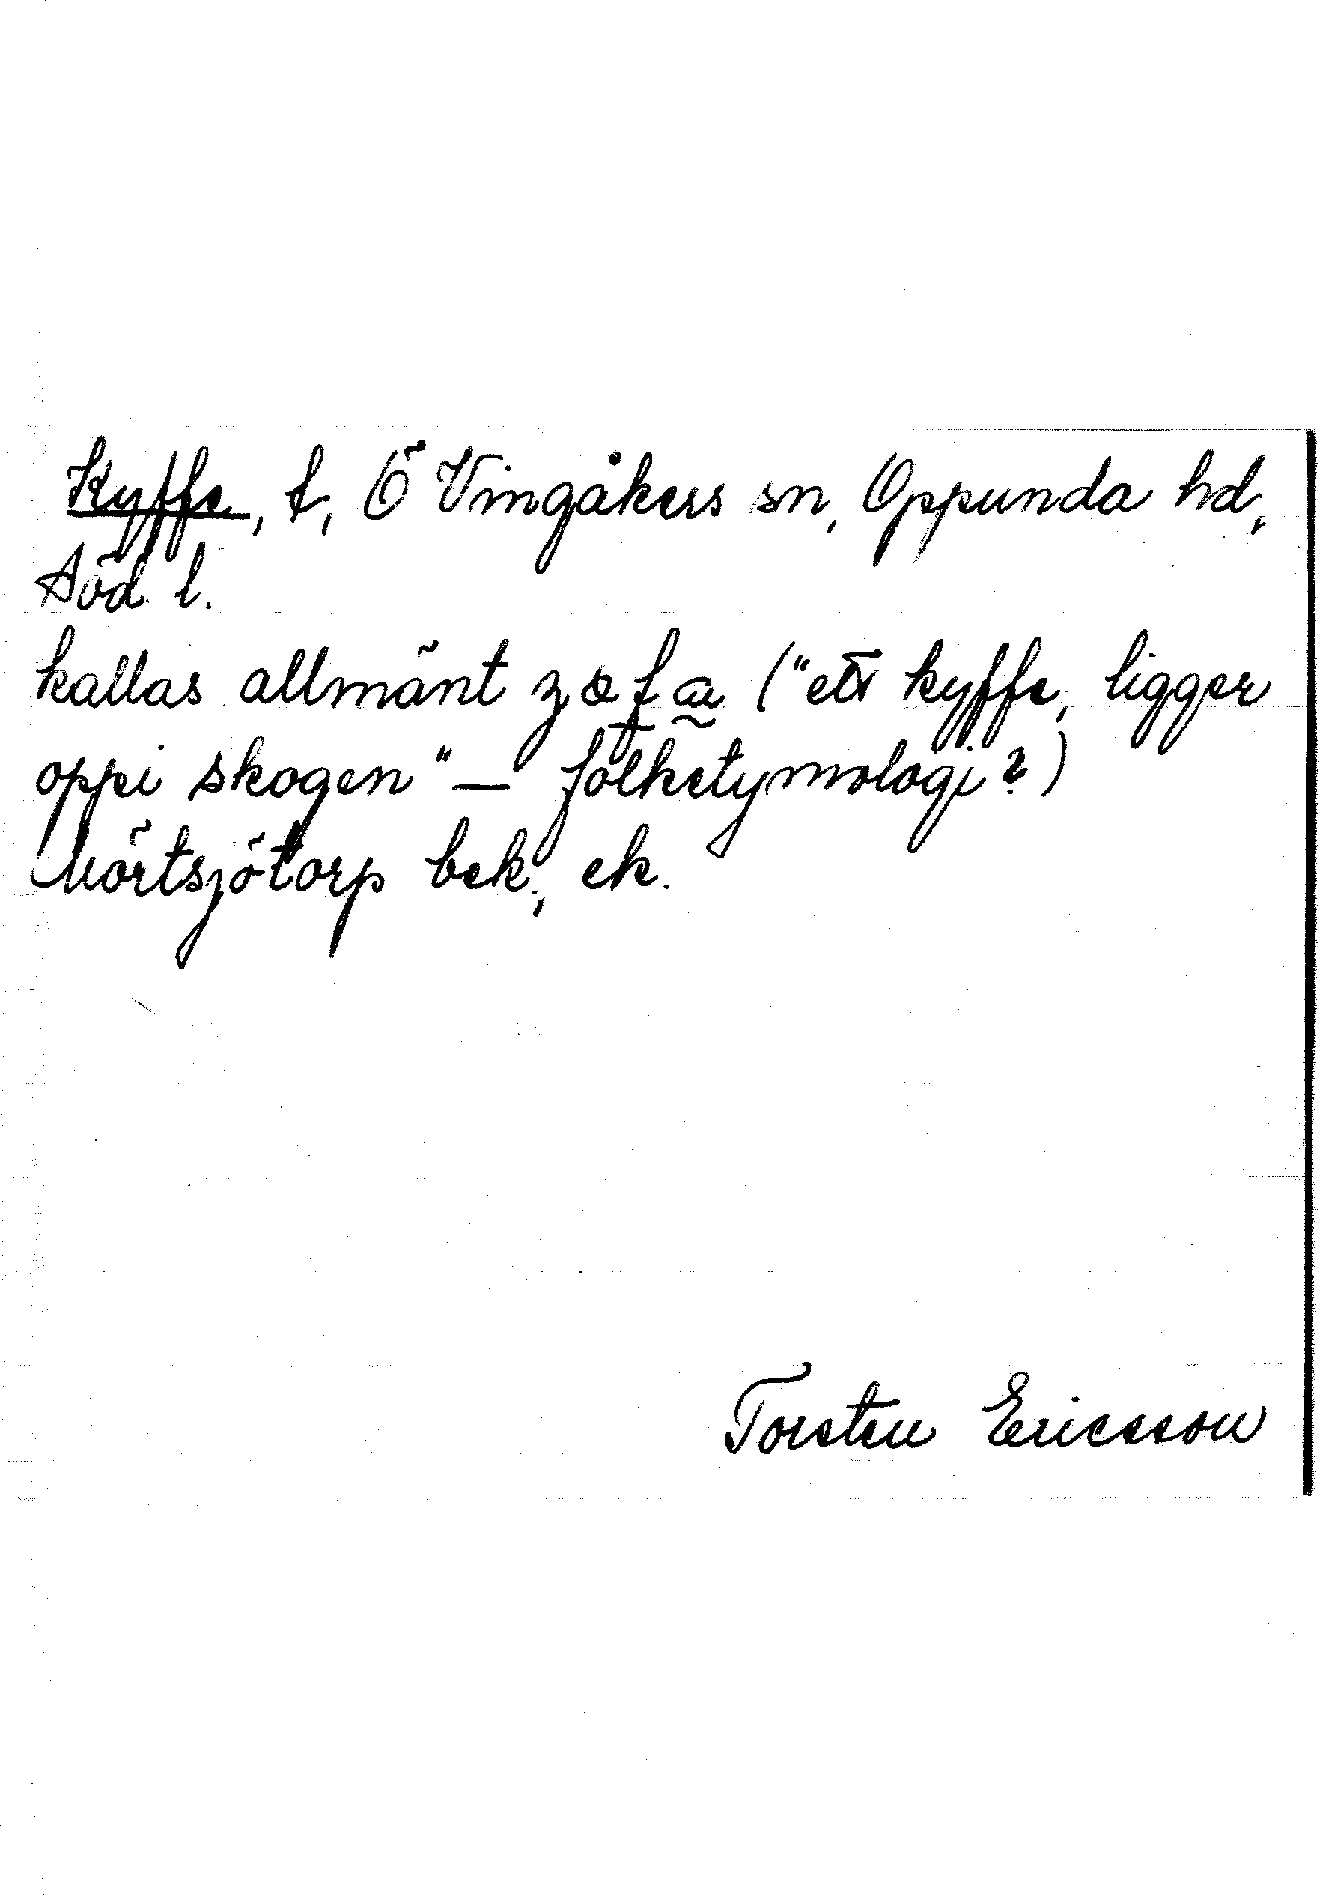 Kyffe, t, Ö Vingåkers sn, Oppunda hd,
Söd l.
kallas allmänt ("ett kyffe, ligger
oppi skogen" — folketymologi?)
Mörtsjötorp bek., ek.
Torsten Ericsson